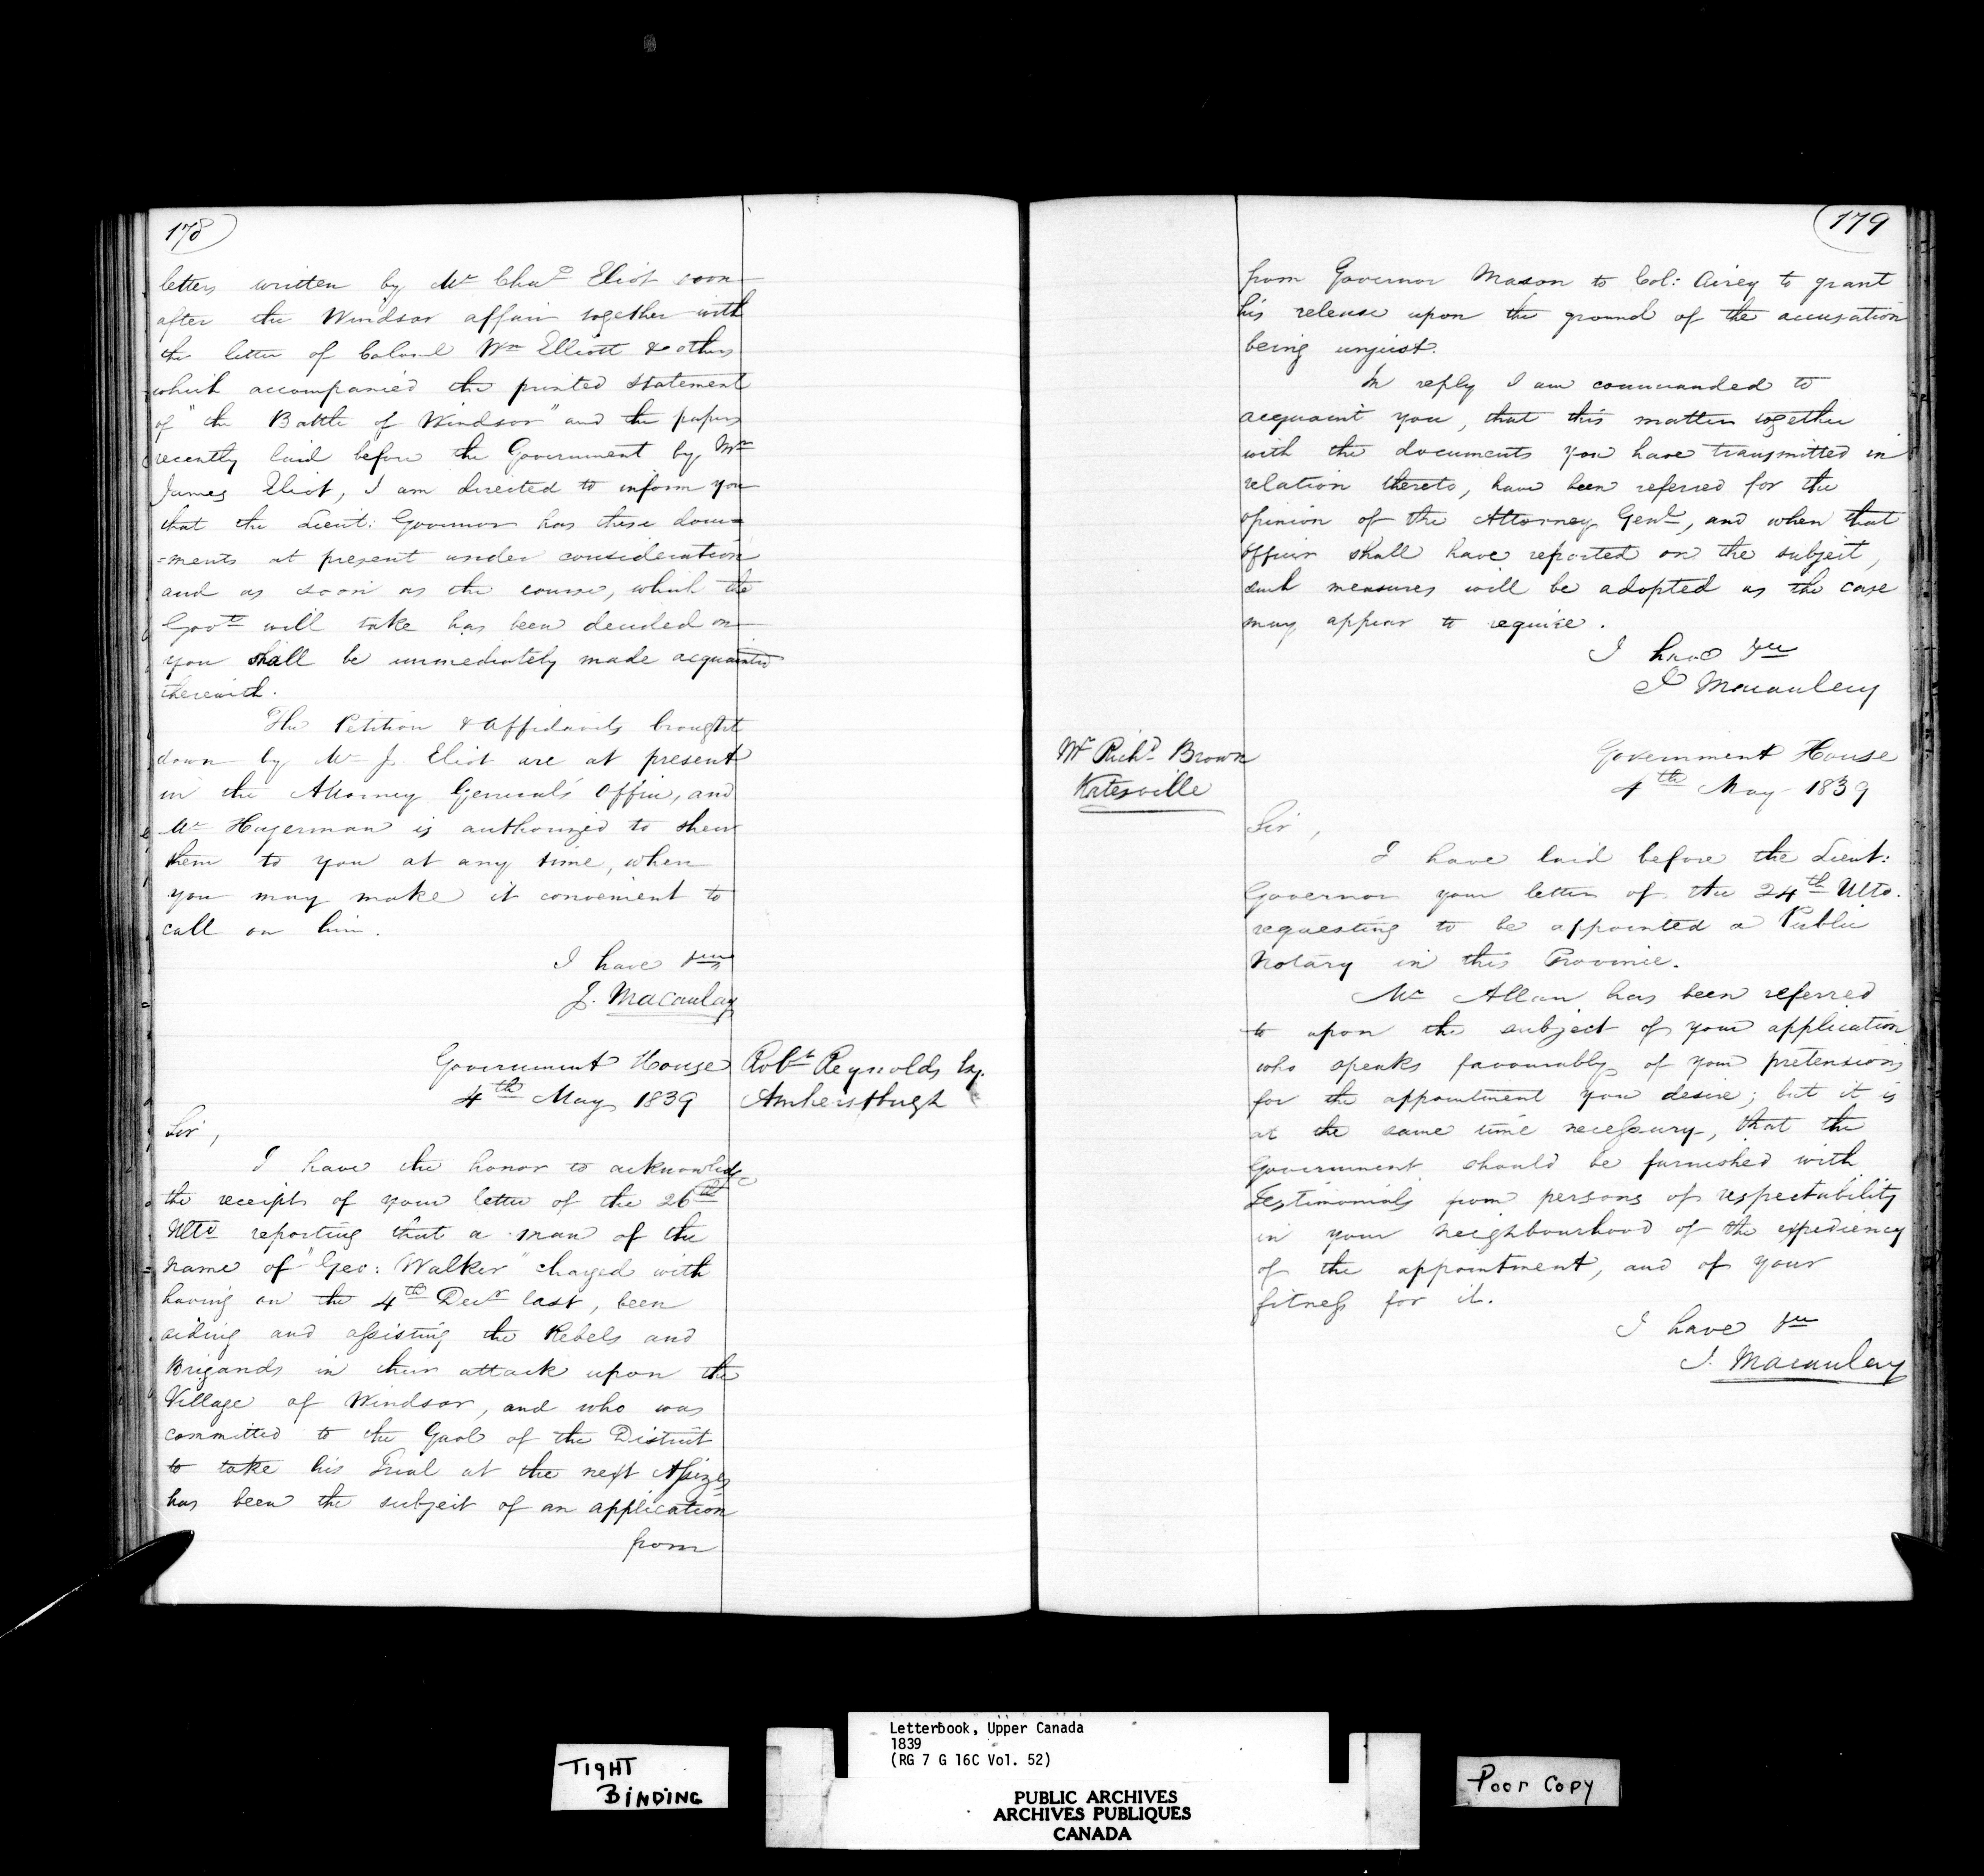 178
letters written by Mr Chas Eliot soon
after the Windsor affair together with
the letter of Colonel Wm Elliott & others
which accompanied the printed statement
of "the Battle of Windsor" and the papers
recently laid before the Government by Mr
James Eliot, I am directed to inform you
that the Lieut: Governor has these docu=
=ments at present under consideration
and as soon as the course, which the
Govt will take has been decided on
you shall be immediately made acquainted
therewith.
The Petition & Affidavits brought
down by Mr J. Eliot are at present
in the Attorney General's Office, and
Mr Hagerman is authorized to shew
them to you at any time, when
you may make it convenient to
call on him.
I have &c
J. Macaulay
Government House
4th May 1839
Robt Reynolds Esq.
Amherstburgh
Sir,
I have the honor to acknowledge
the receipt of your letter of the 26th
Ulto reporting that a man of the
name of "Geo: Walker" charged with
having on the 4th Decr last, been
aiding and assisting the Rebels and
Brigands in their attack upon the
Village of Windsor, and who was
committed to the Gaol of the District
to take his Trial at the next Assizes
has been the subject of an application
from
179
from Governor Mason to Col: Airey to grant
his release upon the ground of the accusation
being unjust.
In reply I am commanded to
acquaint you, that this matter together
with the documents you have transmitted in
relation thereto, have been referred for the
opinion of the Attorney Genl, and when that
officer shall have reported on the subject,
such measures will be adopted as the case
may appear to require.
I have &c
J Macaulay
Mr Richd Brown
Katesville
Government House
4th May 1839
Sir,
I have laid before the Lieut:
Governor your letter of the 24th Ulto.
requesting to be appointed a Public
Notary in this Province.
Mr Allan has been referred
to upon the subject of your application
who speaks favourably of your pretensions
for the appointment you desire; but it is
at the same time necessary, that the
Government should be furnished with
Testimonials from persons of respectability
in your neighbourhood of the expediency
of the appointment, and of your
fitness for it.
I have &c
J. Macaulay
TIGHT
BINDING
Letterbook, Upper Canada
1839
(RG 7 G 16C Vol. 52)
PUBLIC ARCHIVES
ARCHIVES PUBLIQUES
CANADA
Poor Copy